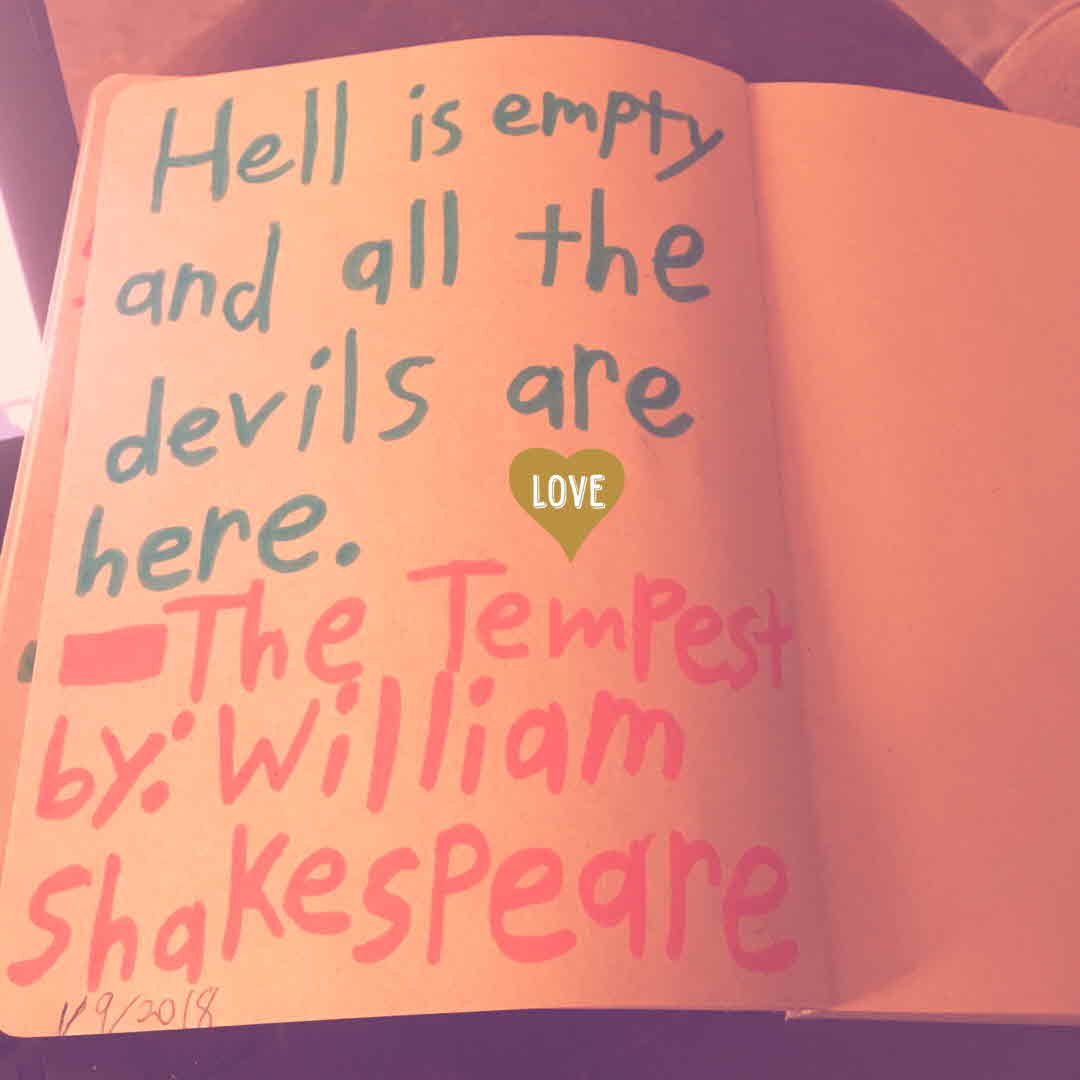 Hell is empty
and all the
devils are
LOVE
here.
—The Tempest
by: William
Shakespeare
9/2018